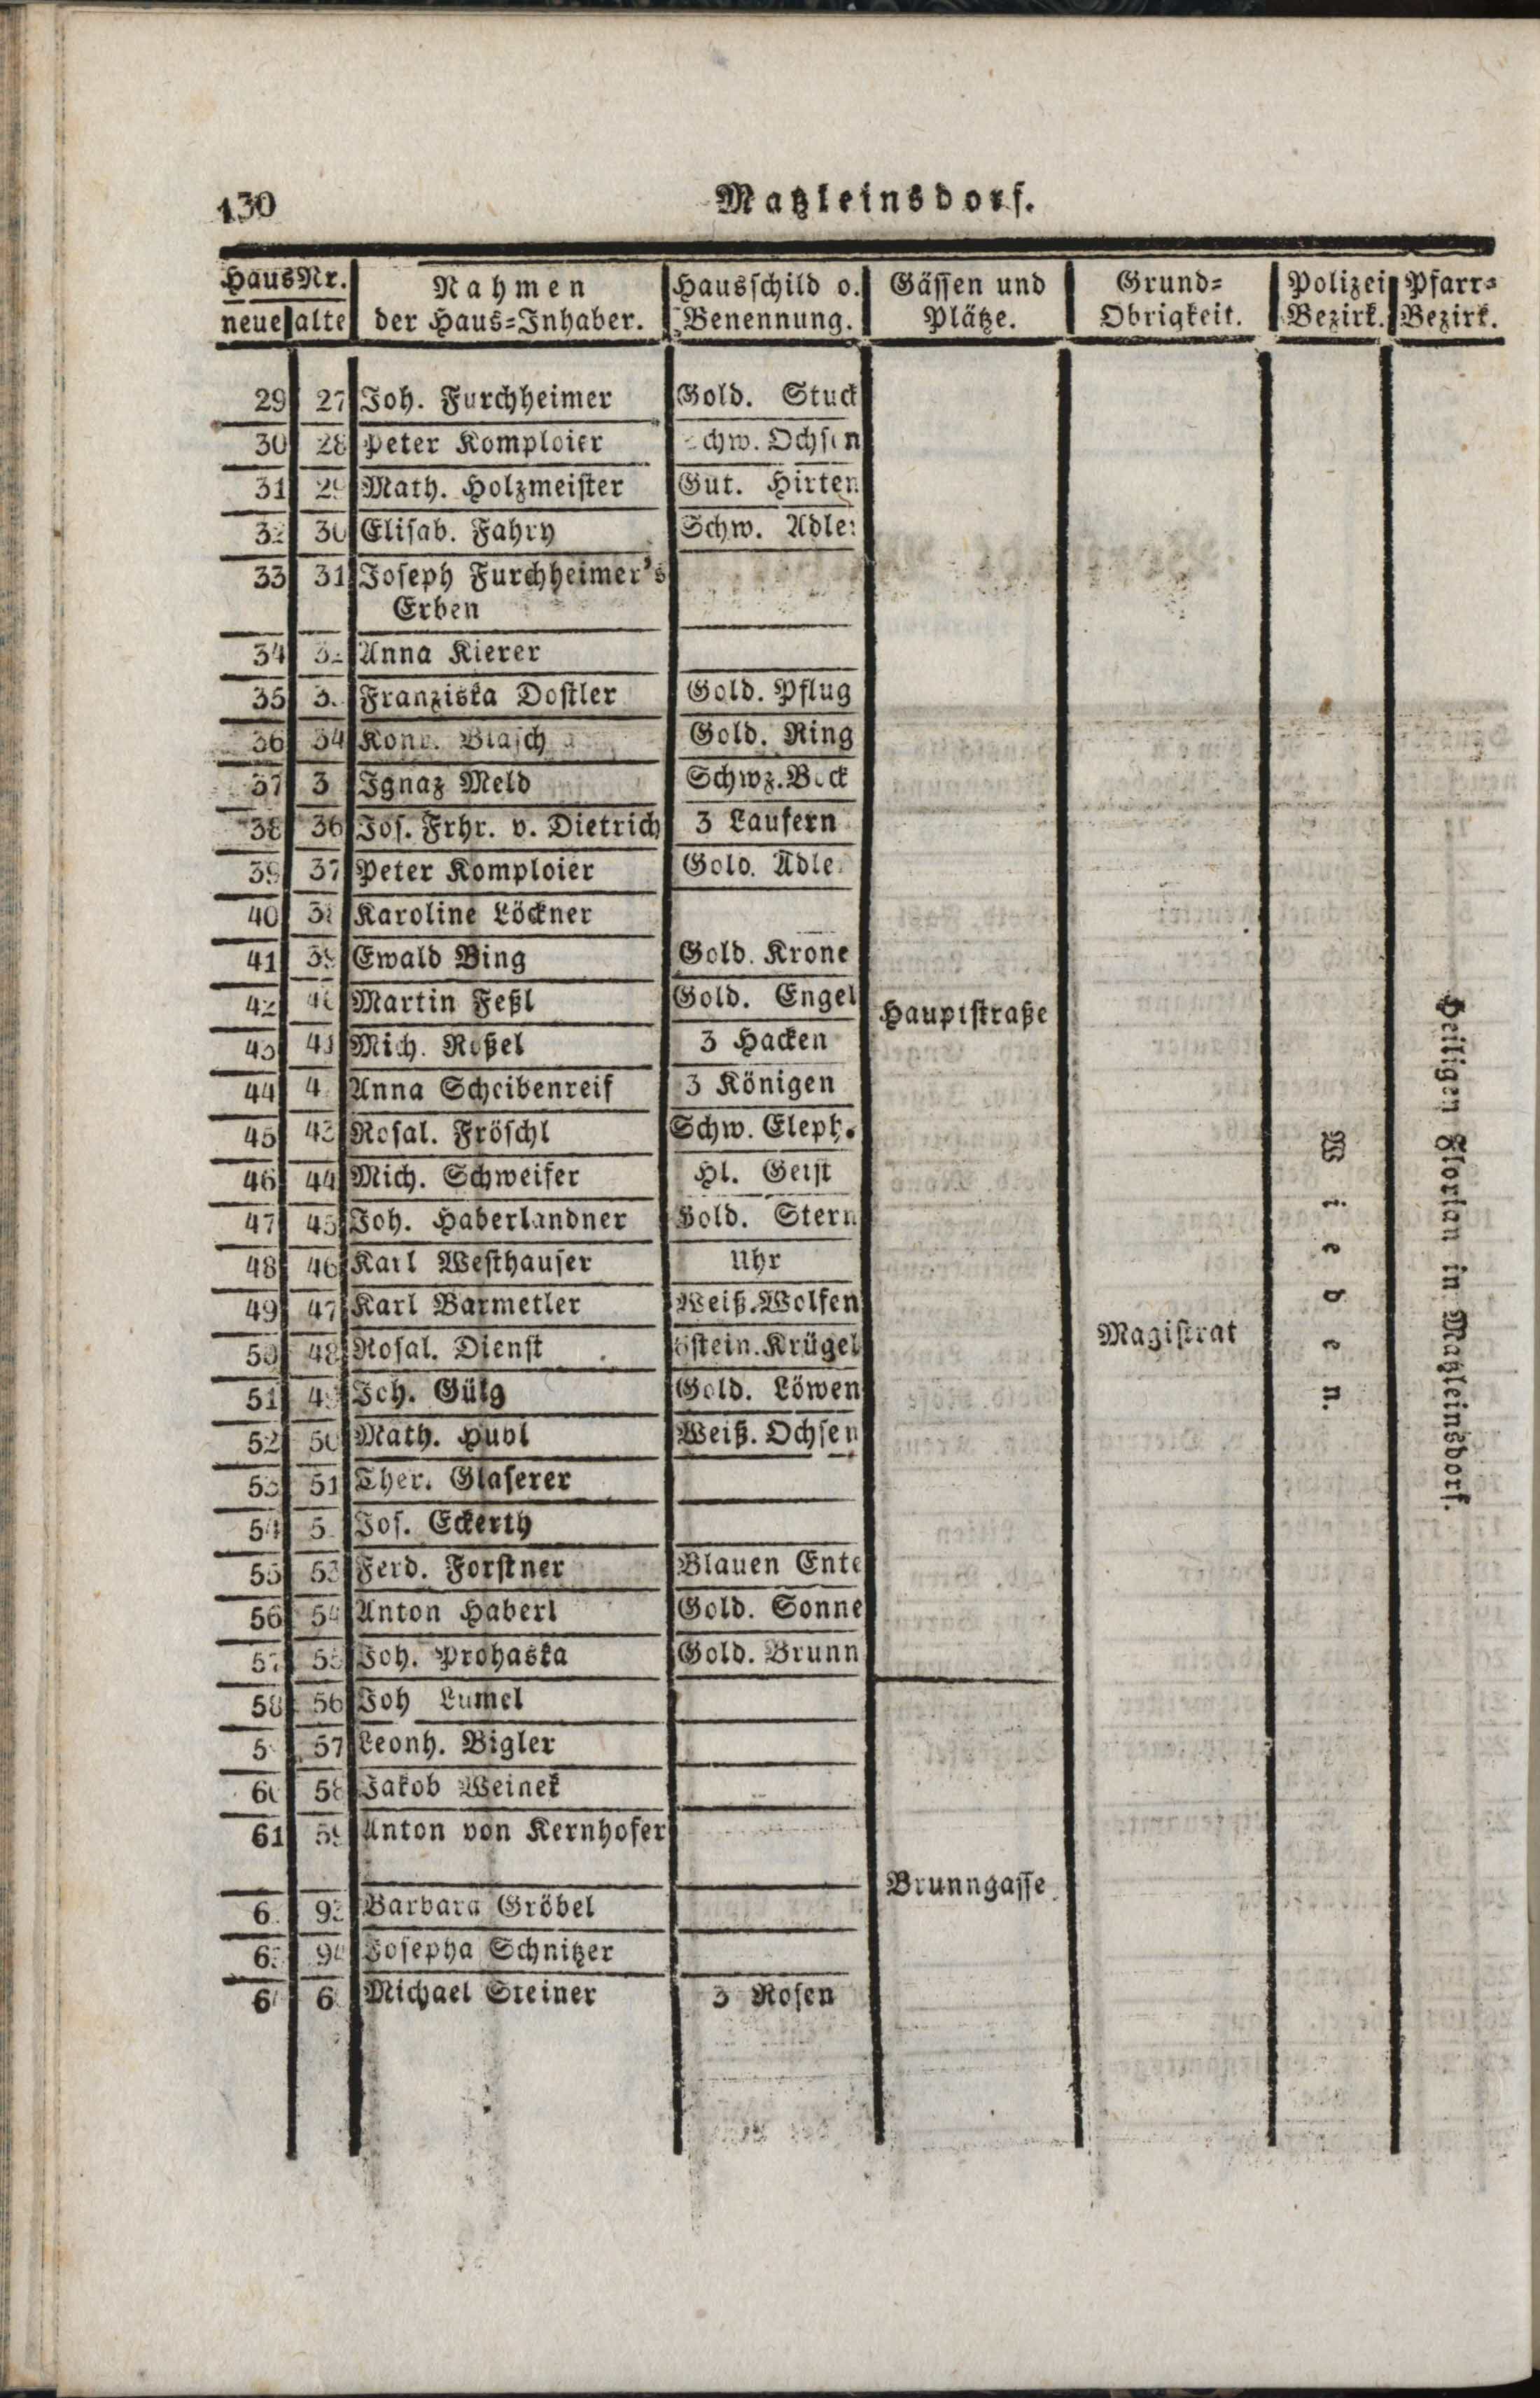 130
Matzleinsdorf.
Haus Nr. Nahmen Hausschild o. Gässen und Grund= Polizei Pfarr=
neue alte der Haus=Inhaber. Benennung. Plätze. Obrigkeit. Bezirk. Bezirk.
29 27 Joh. Furchheimer Gold. Stuck
30 28 Peter Komploier chw. Ochsen
31 29 Math. Holzmeister Gut. Hirten
32 30 Elisab. Fahry Schw. Adler
33 31 Joseph Furchheimer's
Erben
34 Anna Kierer
35 Franziska Dostler Gold. Pflug
36 34 Gold. Ring
37 Ignaz Meld Schwz. Bock
38 36 Jos. Frhr. v. Dietrich 3 Laufern
39 37 Peter Komploier Gold. Adle
40 38 Karoline Löckner
41 39 Ewald Bing Gold. Krone
42 40 Martin Feßl Gold. Engel Hauptstraße
43 41 Mich. Roßel 3 Hacken
44 4 Anna Scheibenreif 3 Königen
45 43 Rosal. Fröschl Schw. Eleph.
46 44 Mich. Schweifer Hl. Geist
47 45 Joh. Haberlandner Gold. Stern
48 46 Karl Westhauser Uhr
49 47 Karl Barmetler Weiß. Wolfen
50 48 Rosal. Dienst stein. Krügel Magistrat
51 49 Joh. Gülg Gold. Löwen
52 50 Math. Hubl Weiß. Ochsen
53 51 Ther. Glaserer
54 5 Jos. Eckerth
55 53 Ferd. Forstner Blauen Ente
56 54 Anton Haberl Gold. Sonne
57 55 Joh. Prohaska Gold. Brunn
58 56 Joh Lumel
5 57 Leonh. Bigler
60 58 Jakob Weinek
61 59 Anton von Kernhofer
Brunngasse
6 93 Barbara Gröbel
6 94 Josepha Schnitzer
6 6 Michael Steiner 3 Rosen
Wieden.
Heiligen Florian in Matzleinsdorf.